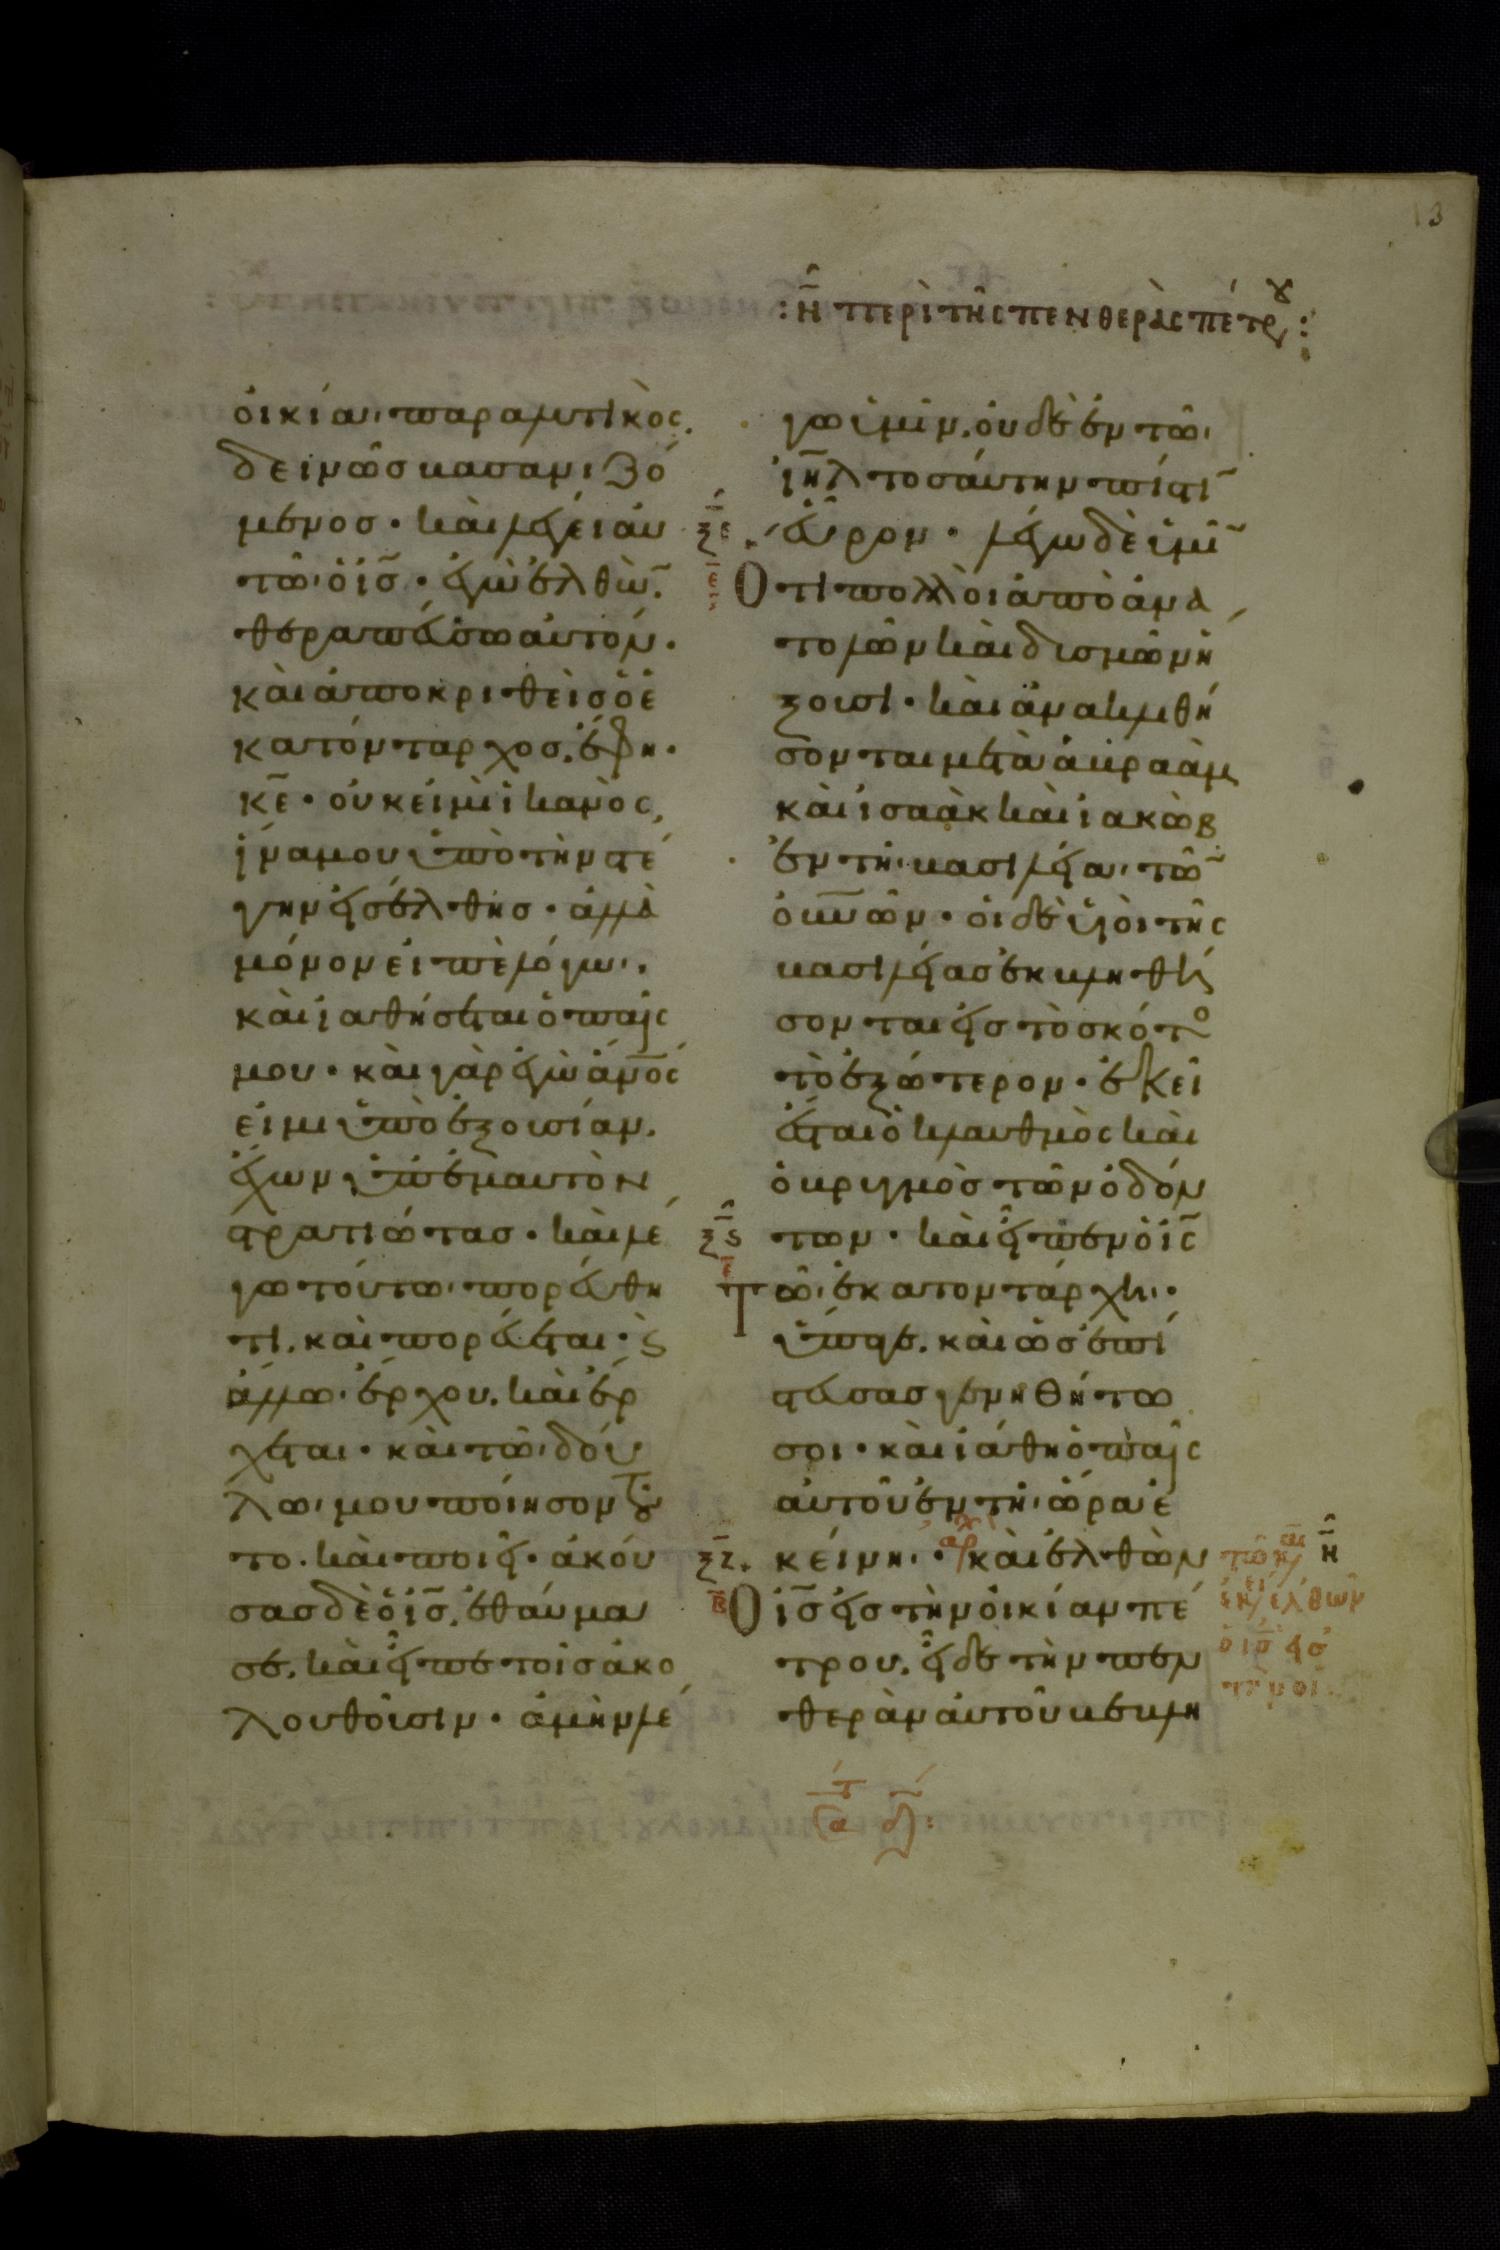 13
: η̅ περὶ τῆς πενθερᾶς πέτρου :
οικία· παραλυτικὸς,
δεινῶς βασανιζό
μενος · καὶ λέγει αυ
τῶ· ὁ ι̅ς̅ · ἐγὼ ἐλθὼ̅.
θεραπεύσω αυτόν.
καὶ ἀποκριθεὶς ὁ ἑ
κατόνταρχος, ἔφη·
κ̅ε̅ · οὐκ εἰμὶ ἱκανὸς,
ἵνα μου ὑπὸ τὴν στέ
γην εἰσέλθης · ἀλλὰ
μόνον εἰπὲ λόγω·.
καὶ ἰαθήσεται ὁ παῖς
μου · καὶ γὰρ ἐγὼ α̅ν̅ο̅ς̅
εἰμι ὑπὸ ἐξουσίαν.
ἔχων ὑπ' ἐμαυτὸν
στρατιώτας · καὶ λέ
γω τούτω· πορεύθη
τι, καὶ πορεύεται · ϗ
ἄλλω· ἔρχου, καὶ ἔρ
χεται · καὶ τῶ· δού
λω· μου ποίησον τοῦ
το. καὶ ποιεῖ · ἀκού
σας δὲ ὁ ι̅ς̅, ἐθαύμα
σε, καὶ εἶπε τοῖς ἀκο
λουθοῦσιν · ἀμὴν λέ
γω ὑμῖν, οὐδὲ ἐν τῶ·
ι̅η̅λ̅ τοσαύτην πίστι̅
ξ̅ε̅ εὗρον · λέγω δὲ ὑμῖ̅
ε̅ Ὅτι πολλοὶ ἀπὸ ἀνα
τολῶν καὶ δυσμῶν ἥ
ξουσι · καὶ ἀνακλιθή
σονται μετὰ ἀβραὰμ
καὶ ἰσαὰκ καὶ ἰακὼβ
ἐν τῆ· βασιλεία· τῶ̅
ο̅υ̅ν̅ῶν · οἱ δὲ υἱοὶ τῆς
βασιλείας ἐκβληθή
σονται εἰς τὸ σκότος
τὸ ἐξώτερον · ἐκεῖ
ἔσται ὁ κλαυθμὸς καὶ
ὁ βρυγμὸς τῶν ὀδόν
ξ̅ς̅ των · καὶ εἶπεν ὁ ι̅ς̅
Τῶ· ἑκατοντάρχη· ·
ὕπαγε, καὶ ὡς ἐπί
στευσας γενηθήτω
σοι · καὶ ἰάθη ὁ παῖς
αὐτοῦ ἐν τῆ· ὥρα· ἐ
ξ̅ζ̅ κείνη· · αρχ καὶ ἐλθὼν
β̅ Ὁ ι̅ς̅ εἰς τὴν οἰκίαν πέ
τρου, εἶδε τὴν πεν
θερὰν αὐτοῦ βεβλη
η̅
τῶ κ̅αι
ἐκείν ἐλθὼν
ὁ ι̅ς̅ εἰς
τὴν οἰ